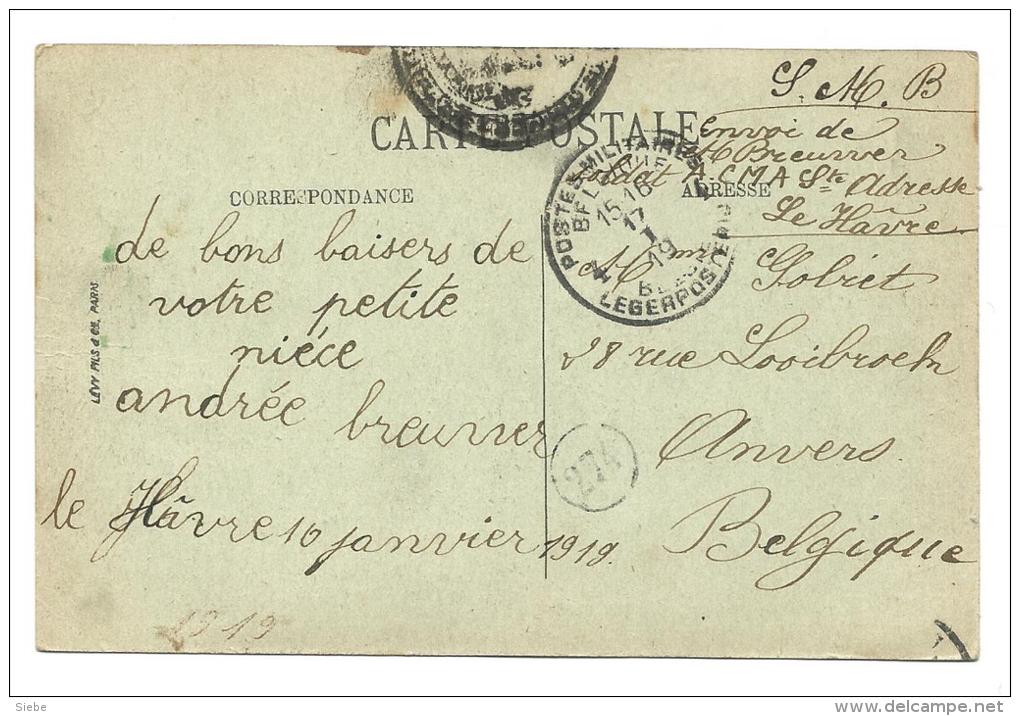 CARTE POSTALE
CORRESPONDANCE
ADRESSE
S. M. B
Envoi de
M Breurrer
Soldat A.C.M.A Ste Adresse
Le Hâvre
POSTES MILITAIRES
BELGIQUE
15-16
17
I
19
BELGIE
LEGERPOSTERIJ
4
de bons baisers de
votre petite
niéce
andrée breurrer
le Hâvre 16 janvier 1919.
1919
Mme Gobiet
28 rue Looibroeck
Anvers
Belgique
274
LÉVY FILS & Cie, PARIS
Siebe
www.delcampe.net